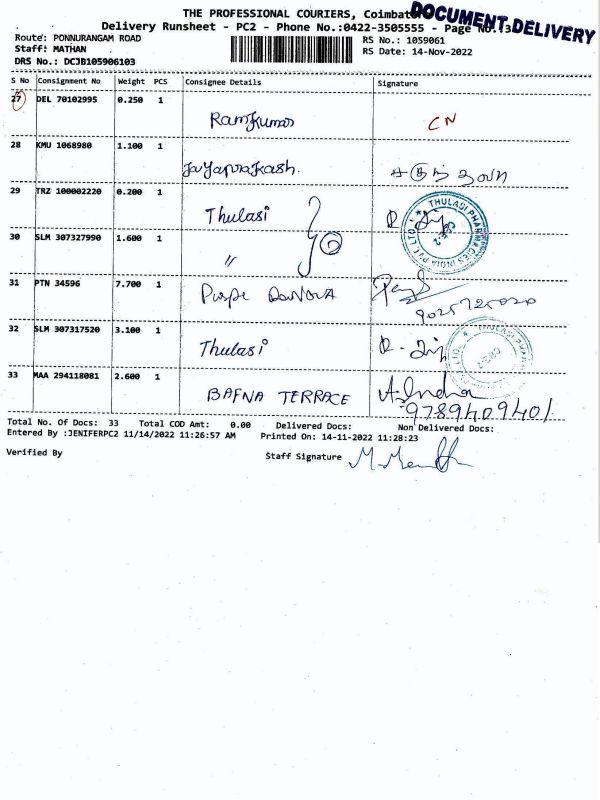 THE PROFESSIONAL COURIERS,
DOCUMENT DELIVERY
Delivery Runsheet - PC2 - Phone No.:0422-3505555 - Page No.
Route: PONNURANGAM ROAD
RS No.: 1059061
Staff: MATHAN
RS Date: 14-Nov-2022
DRS No.: DCJB105906103
S No Consignment No Weight PCS Consignee Details Signature
27 DEL 70102995 0.250 1 Ramkumar CN
28 KMU 1068980 1.100 1 Jayaprakash.
29 TRZ 100002220 0.200 1 Thulasi
THULASI PHARMACIES INDIA PVT LTD
30 SLM 307327990 1.600 1 〃
31 PTN 34596 7.700 1
32 SLM 307317520 3.100 1 Thulasi
33 MAA 294118081 2.600 1 BAFNA TERRACE A. Indra
9789409401
Total No. Of Docs: 33 Total COD Amt: 0.00 Delivered Docs: Non Delivered Docs:
Entered By :JENIFERPC2 11/14/2022 11:26:57 AM Printed On: 14-11-2022 11:28:23
Verified By Staff Signature